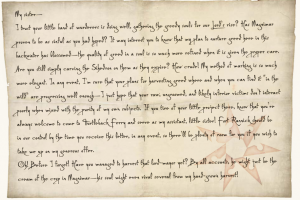 My sister—
I trust your little band of murderers is doing well, gathering the greedy souls for our lord's rise? Has Magnimar
proven to be as sinful as you had hoped? It may interest you to know that my plan to capture greed here in this
backwater has blossomed—the quality of greed in a soul is so much more refined when it is given the proper care.
Are you still carving the Sihedron on them as they expire? How crude! My method of marking is so much
more elegant. In any event, I'm sure that your plans for harvesting greed where and when you can find it "in the
wild" are progressing well enough—I just hope that your raw, unprimed, and likely inferior victims don't interact
poorly when mixed with the purity of my own subjects. If you tire of your little project there, know that you're
always welcome to come to Turtleback Ferry and serve as my assistant, little sister! Fort Rannick should be
in our control by the time you receive this letter, in any event, so there'll be plenty of room for you if you wish to
take me up on my generous offer.
Oh! Before I forget! Have you managed to harvest that lord-mayor yet? By all accounts, he might just be the
cream of the crop in Magnimar—his soul might even rival several from my hand-grown harvest!